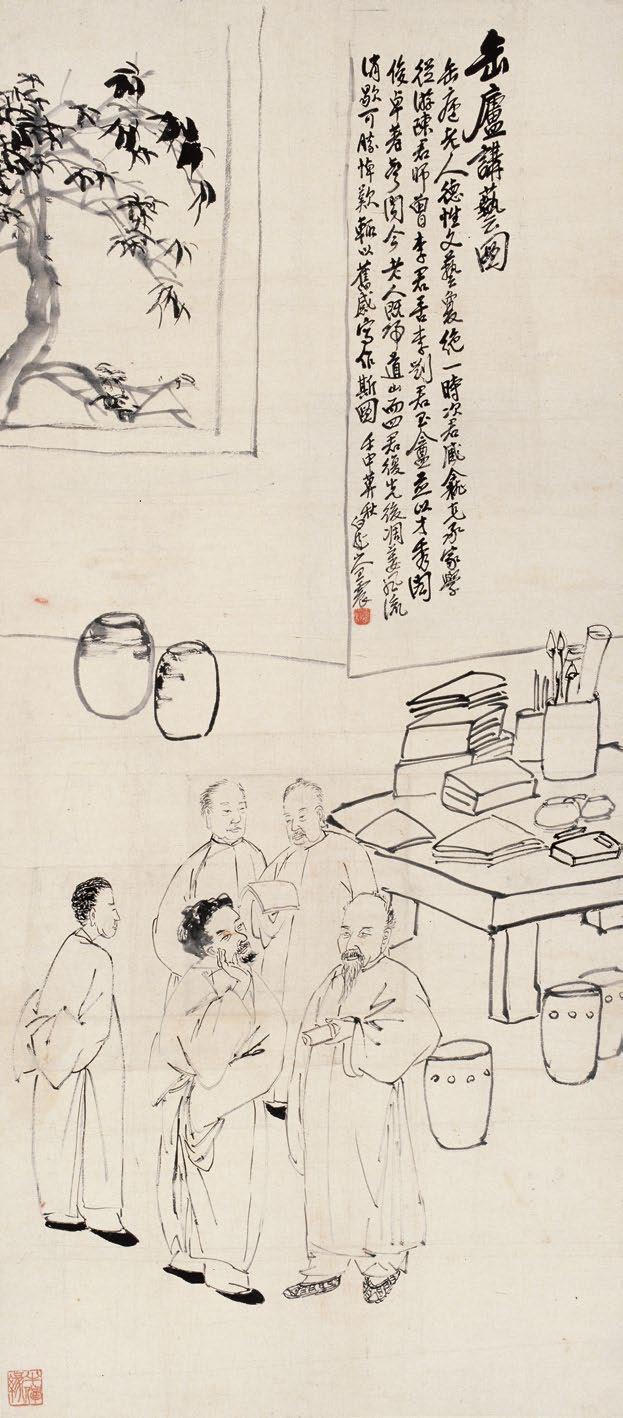 缶廬講藝圖
缶廬老人德性文藝夐絕一時次君臧龕克承家學
從游陳君師曾李君苦李劉君玉盦並以才秀
俊卓著今老人既歸道山而四君復先後凋萎風流
消歇可勝悼歎輒以舊感寫作斯圖 壬申莫秋 白龍山人王震